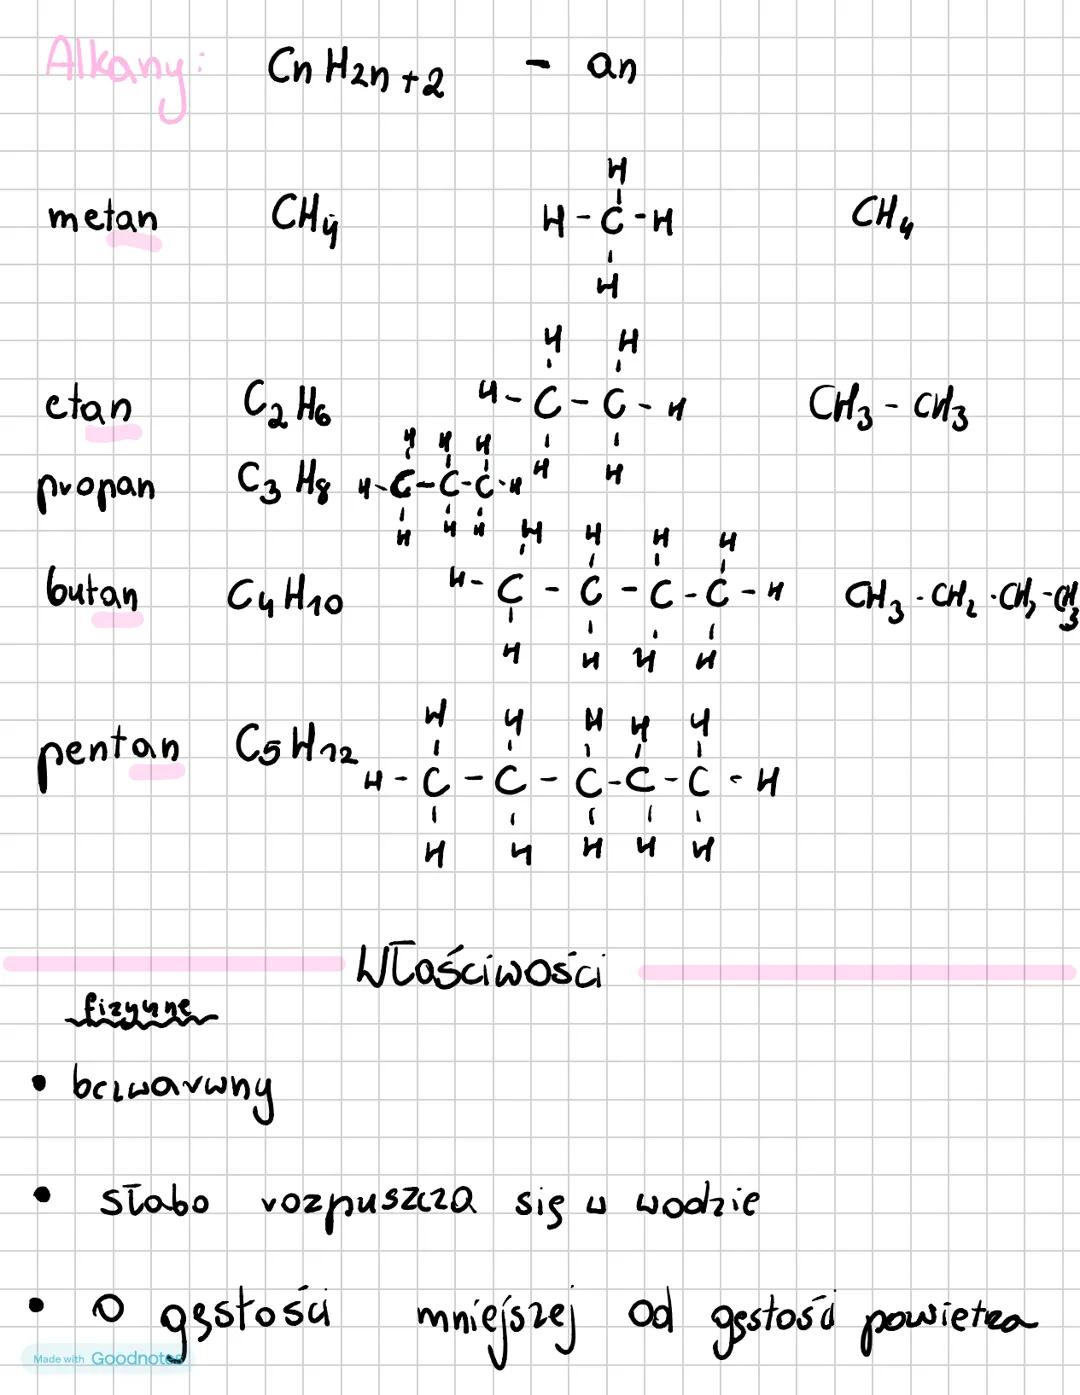 Alkany: CnH2n+2 - an
metan CH4 CH4
H
H-C-H
H
etan C2H6 CH3-CH3
H H
H-C-C-H
H H
propan C3H8
H H H
H-C-C-C-H
H H H
butan C4H10 CH3-CH2-CH2-CH3
H H H H
H-C-C-C-C-H
H H H H
pentan C5H12
H H H H H
H-C-C-C-C-C-H
H H H H H
Właściwości
fizyczne
• bezwarwny
• słabo rozpuszcza się w wodzie
• o gęstości mniejszej od gęstości powietrza
Made with Goodnotes